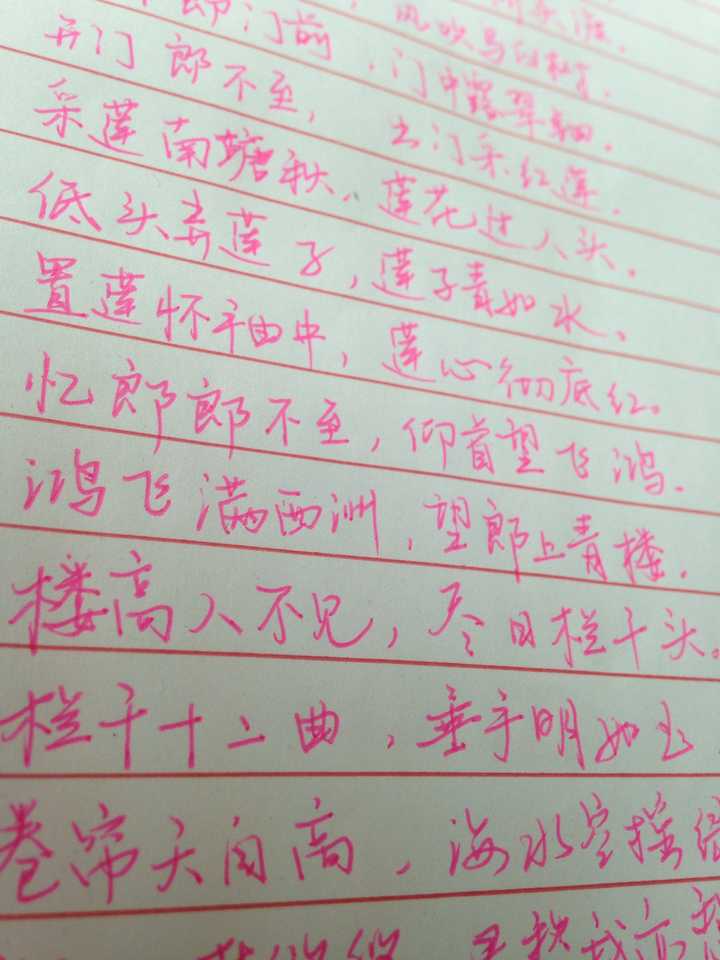 头渡.
风吹乌臼树.
即门前,门中露翠钿.
开门郎不至,出门采红莲.
采莲南塘秋,莲花过人头.
低头弄莲子,莲子青如水.
置莲怀袖中,莲心彻底红。
忆郎郎不至,仰首望飞鸿.
鸿飞满西洲,望郎上青楼.
楼高人不见,尽日栏干头。
栏干十二曲,垂手明如玉
卷帘天自高,海水空摇绿
我亦